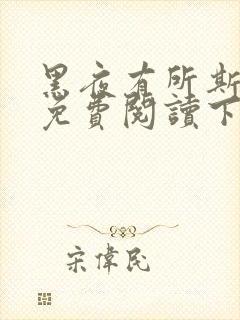 黑夜有所斯
免費閱讀下
宋偉民